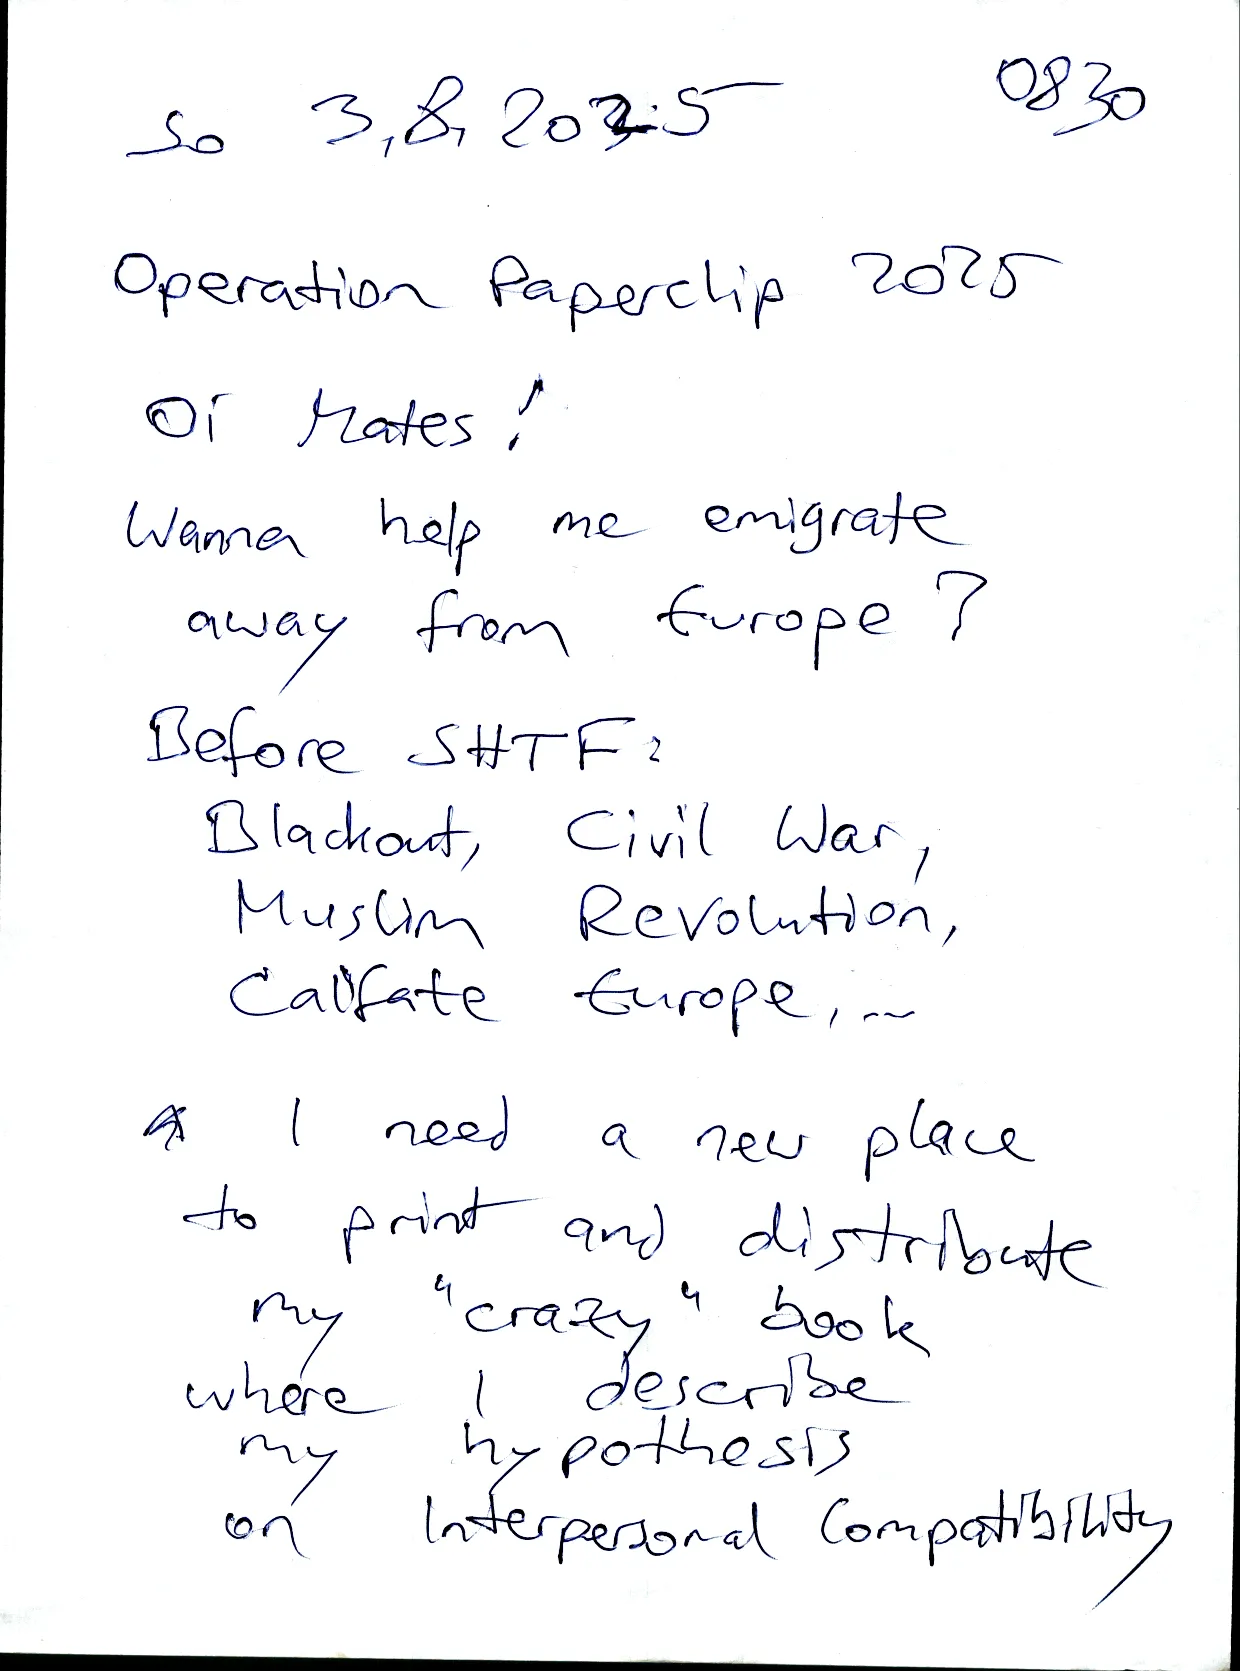 So 3,8,2025 0830
Operation Paperclip 2025
Oi Mates!
Wanna help me emigrate
away from Europe?
Before SHTF:
Blackout, Civil War,
Muslim Revolution,
Califate Europe, ...
I need a new place
to print and distribute
my "crazy" book
where I describe
my hypothesis
on Interpersonal Compatibility